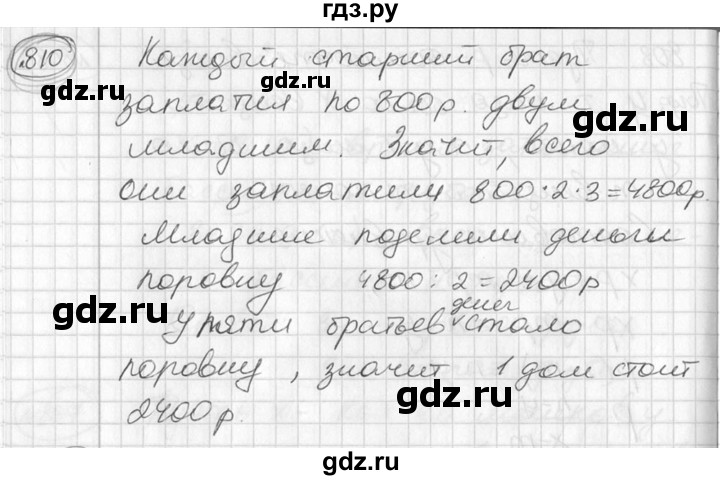 гдз.ру
810 Каждый старший брат
gdz.ru gdz.ru
заплатил по 800р. двум
младшим. Значит, всего
они заплатили 800·2·3=4800р.
gdz.ru gdz.ru
Младшие поделили деньги
поровну 4800:2=2400р
gdz.ru денег gdz.ru
У пяти братьев стало
поровну, значит 1 дом стоит
gdz.ru
2400р.
gdz.ru gdz.ru
gdz.ru